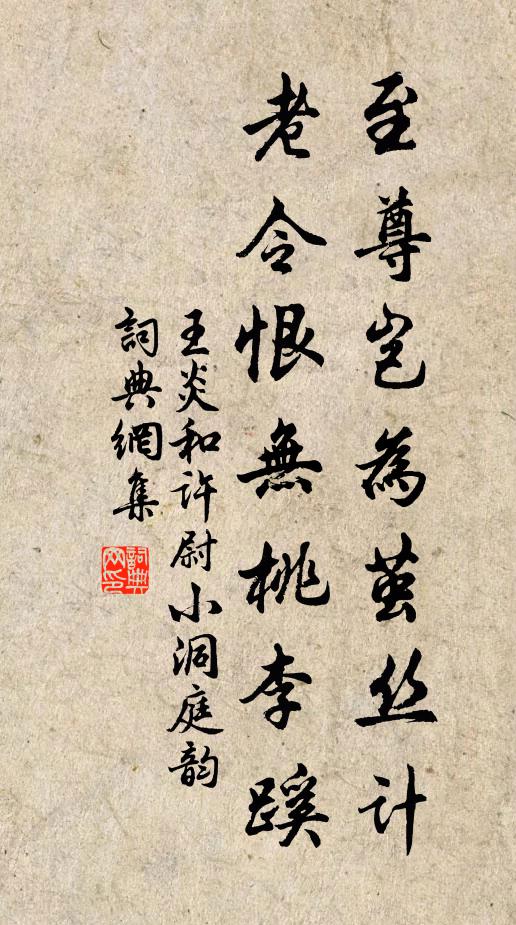 至尊岂為茧丝计
老令恨無桃李蹊
王炎和许尉小洞庭韵
詞典網集
詞典网印